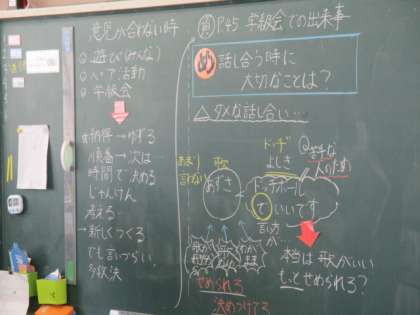 意見が合わない時
遊び(みんな)
ペア活動
学級会
納得→ゆずる
順番→次は…
時間で決める
じゃんけん
考える
→新しくつくる
でも言いづらい
多数決
P.45 学級会での出来事
め
話し合う時に
大切なことは?
△ダメな話し合い…
ドッヂ
よしき
苦手な
人のため
あまり
言わない
歌
あずさ
ドッチボール
でいいです
言い方
せめられる
決めつけてる
本当は歌がいい
もっとせめられる?